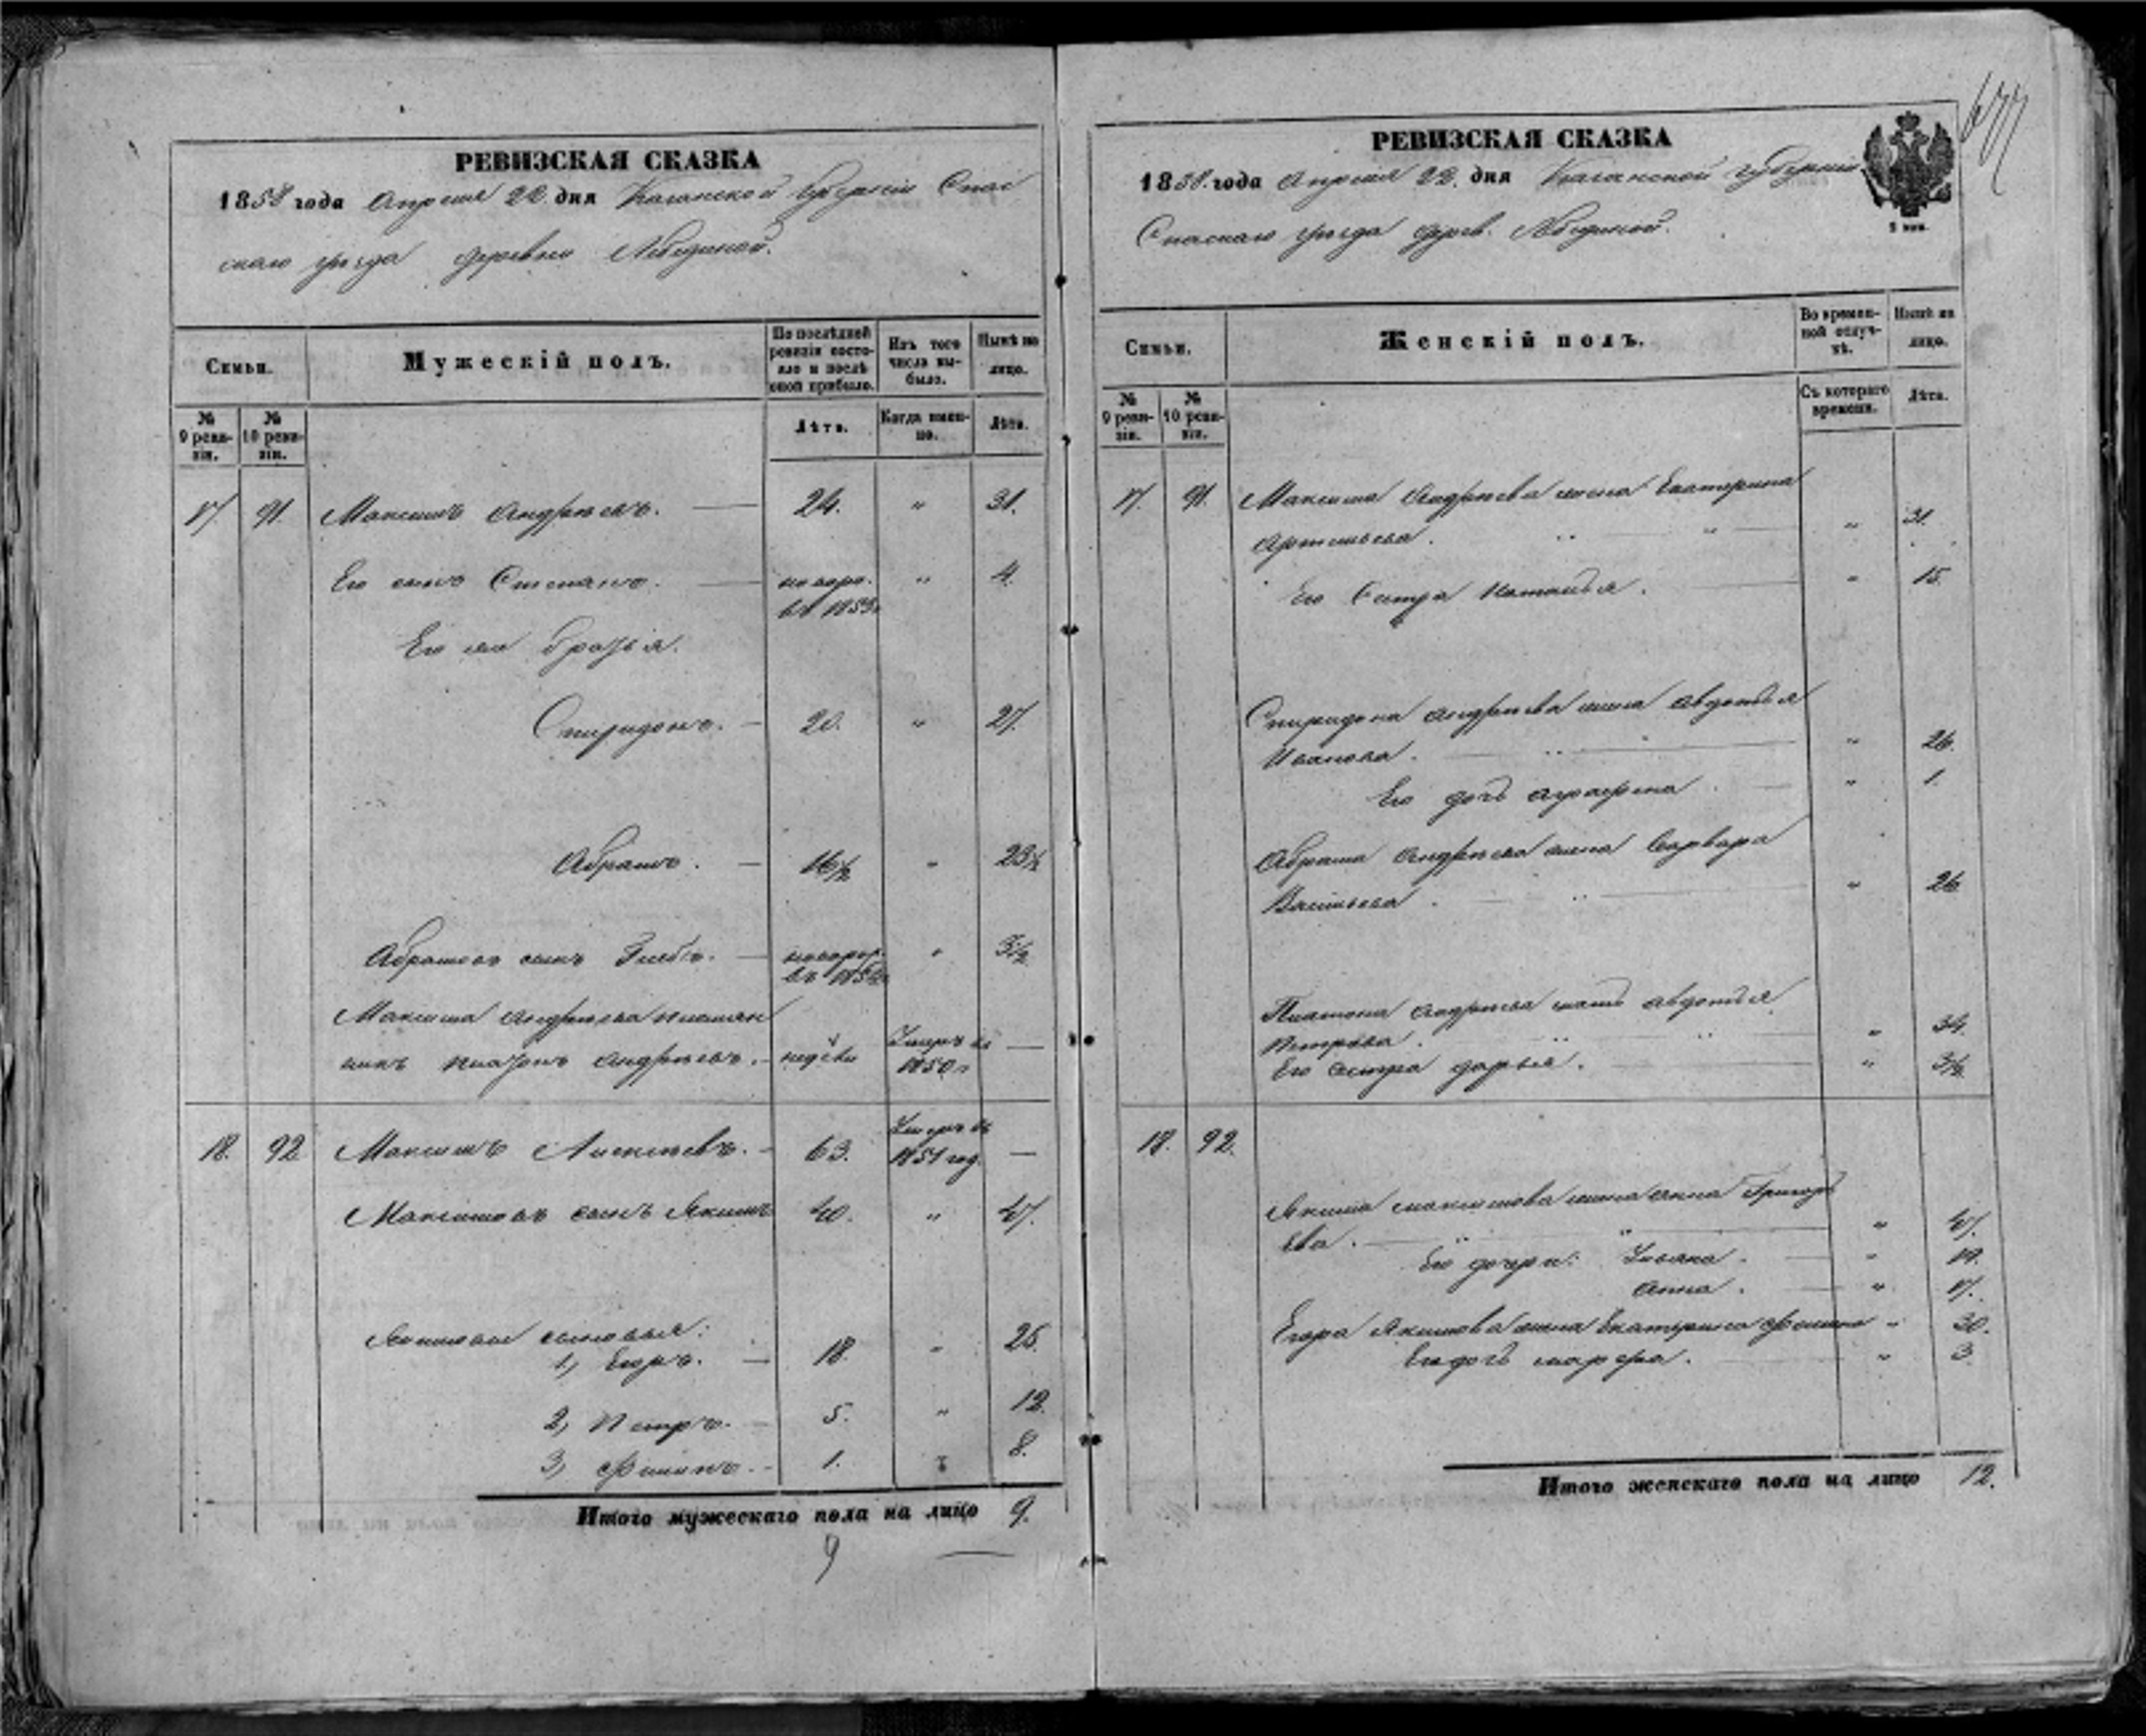 677
РЕВИЗСКАЯ СКАЗКА
1858 года Апреля 22 дня Казанской губерніи Спас
скаго уѣзда деревни Лебединой.
Семьи.
Мужескій полъ.
По послѣдней ревизіи состояло и послѣ оной прибыло.
Изъ того числа выбыло.
Нынѣ на лицо.
№ 9 ревизіи.
№ 10 ревизіи.
Лѣта.
Когда именно.
Лѣта.
17 91. Максимъ Андреевъ. 24. " 31.
Его сынъ Степанъ. новоро. " 4.
Его же братья.
Спиридонъ. 20. " 27.
Абрамъ. 16½ " 23½
Абрамовъ сынъ Глебъ. новорож. " 3½
Максима Андреева племян
никъ Платонъ Андреевъ. недели Умеръ въ 1850 г —
18. 92 Максимъ Алексеевъ. 63. Умеръ въ 1851 год. —
Максимовъ сынъ Якимъ 40. " 47.
Якимовы сыновья:
1, Егоръ. 18. " 25.
2, Петръ. 5. " 12.
3, Филипъ. 1. " 8.
Итого мужескаго пола на лицо 9.
9
РЕВИЗСКАЯ СКАЗКА
1858 года Апреля 22 дня Казанской губерніи
Спаскаго уѣзда дерев. Лебединой.
Семьи.
Женскій полъ.
Во временной отлучкѣ.
Нынѣ на лицо.
№ 9 ревизіи.
№ 10 ревизіи.
Съ котораго времени.
Лѣта.
17. 91. Максима Андреева жена Екатерина
Артемьева. " 31.
Его Сестра Наталья. " 15.
Спиридона Андреева жена Авдотья
Иванова. " 26.
Его дочь Аграфена " 1.
Абрама Андреева жена Варвара
Васильева. " 26
Платона Андреева мать Авдотья
Петрова. " 34.
Его сестра Дарья. "
18. 92.
Якима Максимова жена Анна Григорь
ева. " 47.
Его дочери: Ульяна. " 19.
Анна. " 17.
Егора Якимова жена Екатерина " 30.
Его дочь Марфа. " 3
Итого женскаго пола на лицо 12.